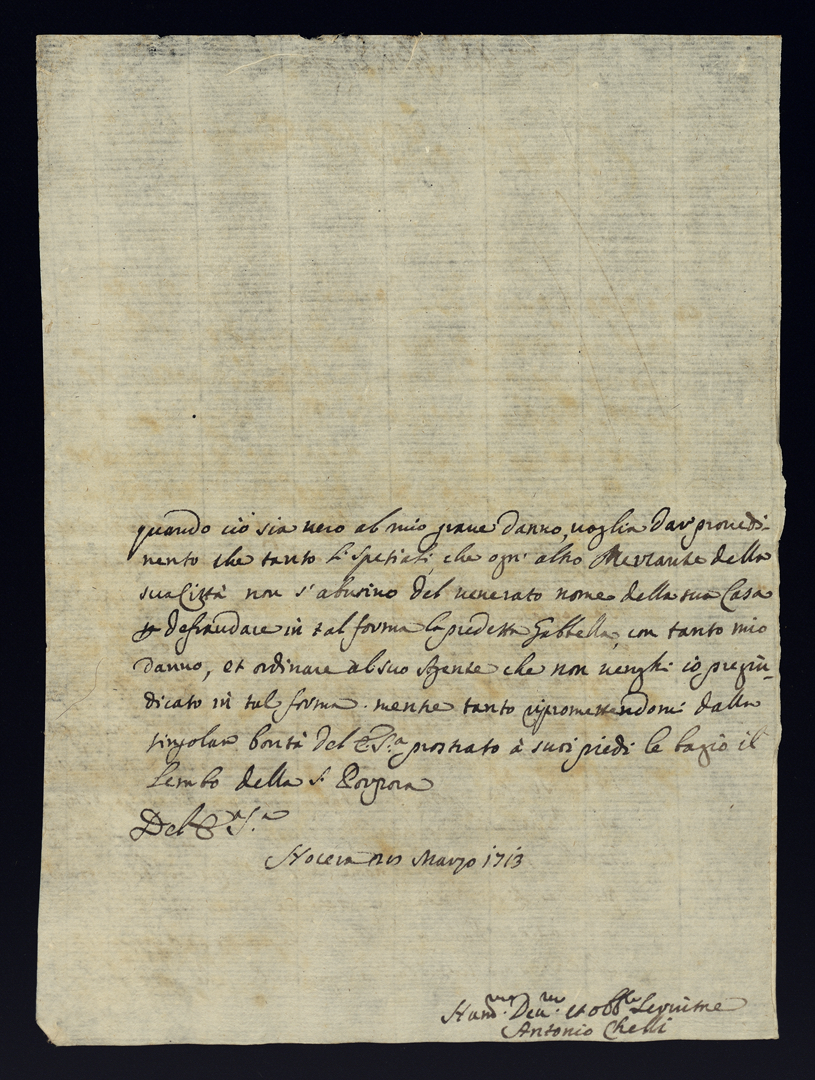 quando ciò sia vero al mio grave danno, voglia dar provedi-
mento che tanto li spetiali, che ogn' altro Mercante della
sua Città non s'abusino del venerato nome della sua Casa
defraudare in tal forma la predetta Gabbella, con tanto mio
danno, et ordinare al suo Agente che non venghi io pregiu-
dicato in tal forma. mentre tanto ripromettendomi dalla
singolar bontà del E. S.a prostrato à suoi piedi le bagio il
Lembo della S. Porpora
Del E.a S.a
Nocera Marzo 1713
Hum.mo Dev.mo et obb.mo Servitore
Antonio Chelli